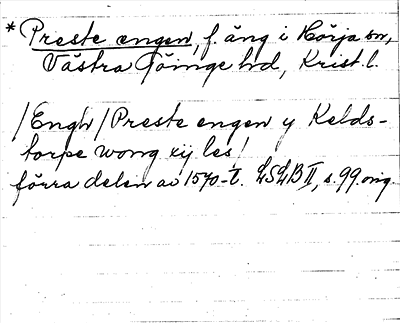 * Preste engen, f. äng i Hörja sn,
Västra Göinge hd, Krist. l.
/Engh/ Preste engen y Kelds-
torpe wong xij les/
förra delen av 1570-t. LSLB II, s. 99. orig.